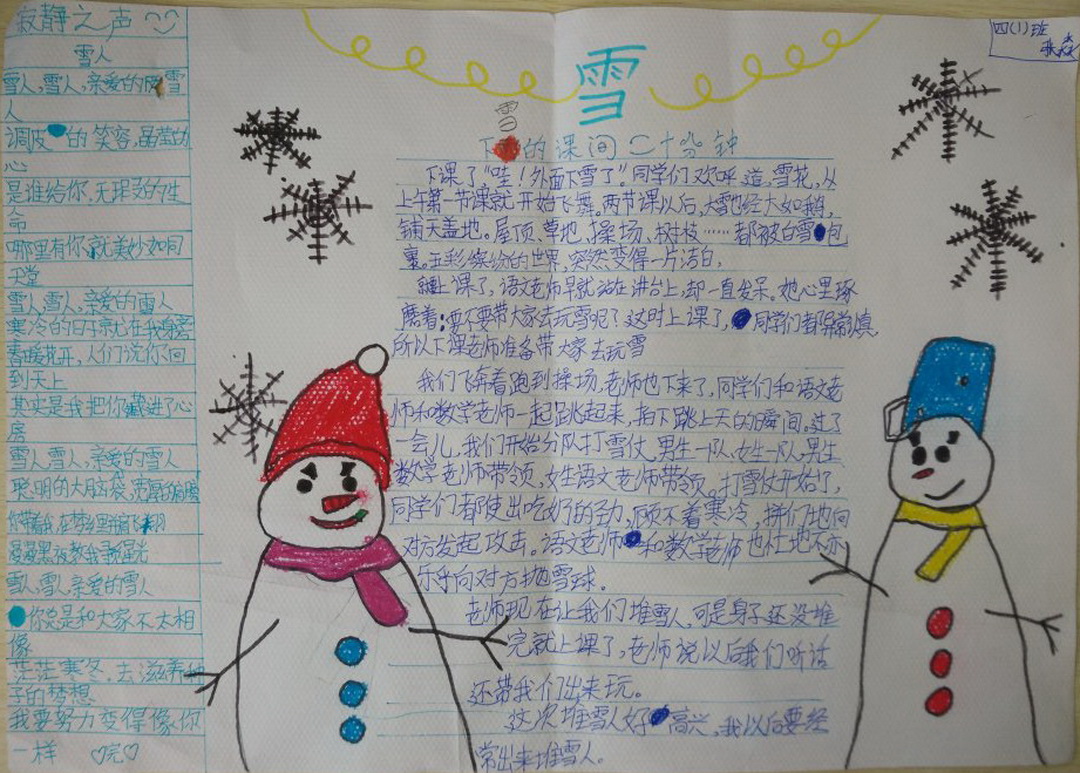 寂静之声
雪人
雪人,雪人,亲爱的雪
人
调皮的笑容,晶莹的
心
是谁给你,无瑕的生
命
哪里有你,就美妙如同
天堂
雪人,雪人,亲爱的雪人
寒冷的日子就在我身旁
春暖花开,人们说你回
到天上
其实是我把你藏进了心
房
雪人雪人,亲爱的雪人
聪明的大脑袋,宽厚的
你带着我在梦里
漫漫黑夜教我
雪人,雪人,亲爱的雪人
你总是和大家不太相
像
茫茫寒冬,去滋养种
子的梦想
我要努力变得像你
一样 ♡完♡
雪
四(1)班
张焱
雪
下的课间二十分钟
下课了“哇!外面下雪了”。同学们欢呼道,雪花,从
上午第一节课就开始飞舞。两节课以后,大雪已经大如鹅,
铺天盖地。屋顶、草地、操场、树枝……都被白雪包
裹。五彩缤纷的世界,突然变得一片洁白,
上课了,语文老师早就站在讲台上,却一直发呆。她心里琢
磨着:要不要带大家去玩雪呢?这时上课了,同学们都异常慎
所以下课老师准备带大家去玩雪
我们飞奔着跑到操场,老师也下来了,同学们和语文老
师和数学老师一起跳起来,拍下跳上天的瞬间。过了
一会儿,我们开始分队打雪仗,男生一队,女生一队,男生
数学老师带领,女生语文老师带领。打雪仗开始了,
同学们都使出吃奶的劲,顾不着寒冷,拼们地向
对方发起攻击。语文老师和数学老师也忙地不亦
乐乎向对方抛雪球。
老师现在让我们堆雪人,可是身子还没堆
完就上课了,老师说以后我们听话
还带我们出来玩。
这次堆雪人好高兴,我以后要经
常出来堆雪人。